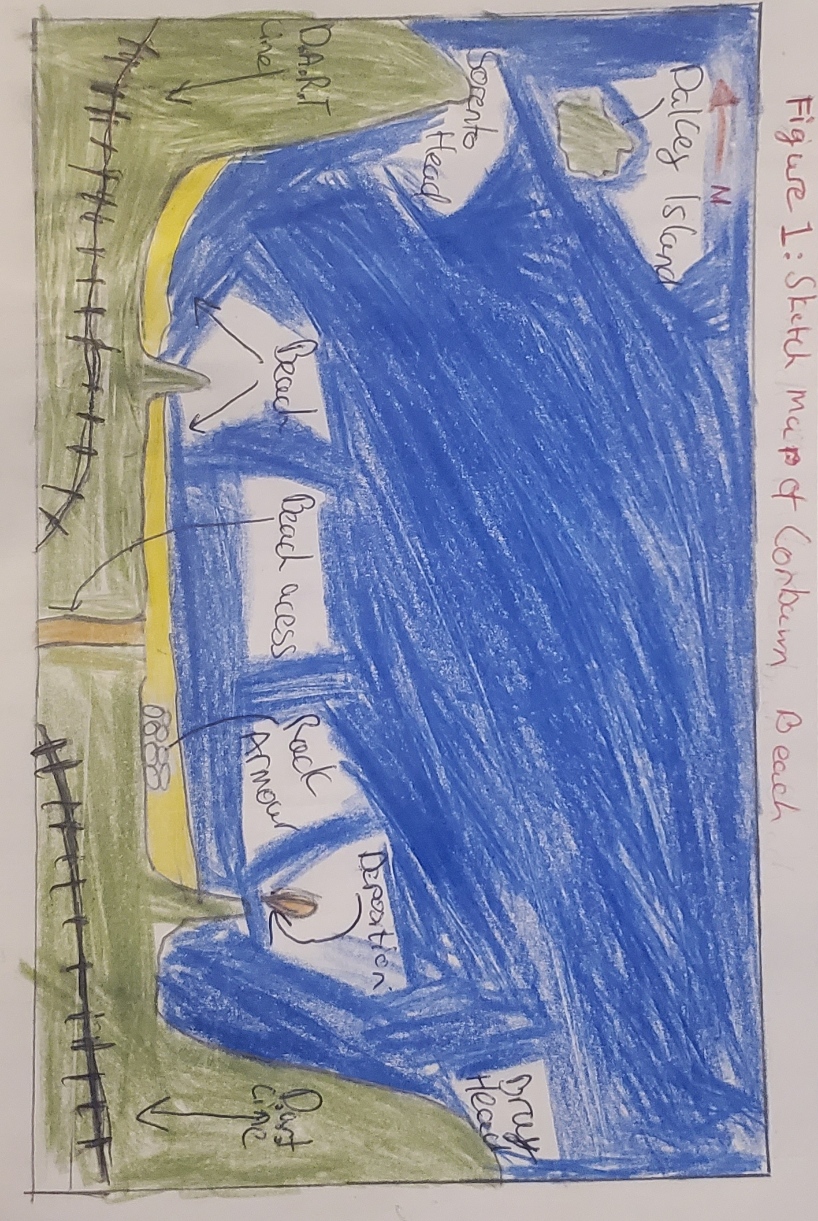 Figure 1: Sketch map of Corbawn Beach
N
Dalkey Island
Sorento
Head
D.A.R.T
Line
Beach
Beach acess
Rock
Armour
Deposition
Bray
Head
Dart
Line